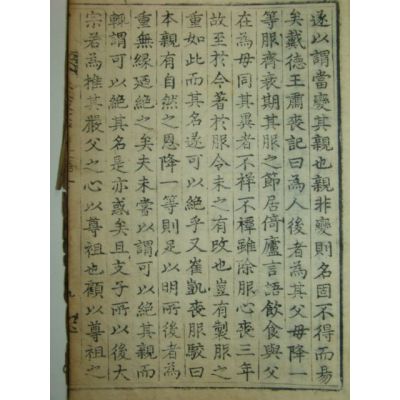 遂以謂當變其親也親非變則名固不得而易
矣戴德王肅喪記曰為人後者為其父母降一
等服齊衰期其服之節居倚廬言語飲食與父
在為母同其異者不祥不禫雖除服心喪三年
故至於今著於服令未之有改也豈有製服之
重如此而其名遂可以絶乎又崔凱喪服駮曰
本親有自然之恩降一等則足以明所後者為
重無緣廼絶之矣夫未嘗以謂可以絶其親而
輙謂可以絶其名是亦惑矣且支子所以後大
宗者為推其嚴父之心以尊祖也顧以尊祖之